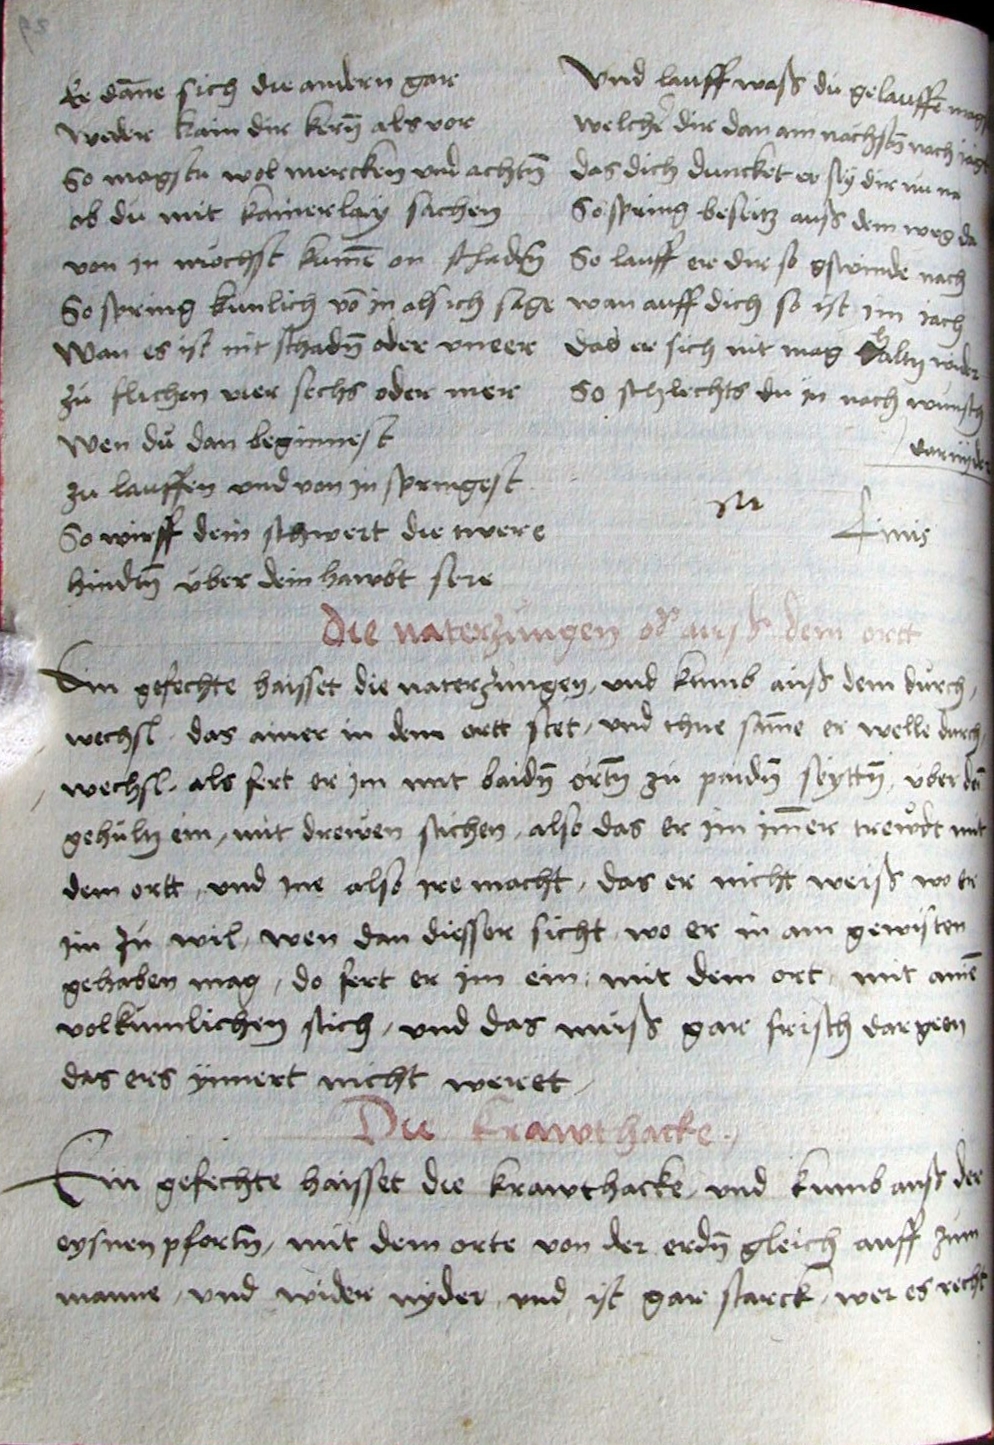 Ee dane sich die andern gar
weder kain dir kern als vor
So magstu wol mercken und achtn
ob du mit kainerlay sachen
von in mochst kume on schadn
So spring kunlich vo in als ich sage
Wan es ist nit schadn oder uneer
zu flichen vier sechs oder mer
Wen du dan beginnest
zu lauffen und von in springest
So wirff dein schwert die twere
hindn über dein hawbt sere
Und lauff waß du gelauffe magst
welche dir dan am nachstn nach jagt
das dich duncket er sey dir nu na
So spring beseitz auß dem weg da
So lauff er dir so gswinde nach
wan auff dich so ist im jach
das er sich nit mag haltn wider
So schlechts du in nach wunsch
darnyder
Finis
Die naterzungen od auß dem ortt
Ein gefechte haisset die naterzungen, und kumb auß dem durch,
wechsl. das ainer in dem ortt stet, und thue same er welle durch,
wechsl. als fert er im mit baidn ortn zu paidn seyttn, über den
gehultz ein, mit drewen stichen, also das er im imer trewbt mit
dem ortt, und ine also ire macht, das er nicht weiß wo er
im zu wil, wen dan diesser sicht, wo er in am gewisten
gehaben mag, do fert er im ein, mit dem ort, mit aine
volkumlichen stich, und das muß gar frisch dar geen
das ers ynnert nicht weret,
Die Krawthacke.
Ein gefechte haisset die krawthacke, und kumb auß der
eysnen pfortn, mit dem orte von der erdn gleich auff zum
manne, und wider nyder, und ist gar starck, wer es recht